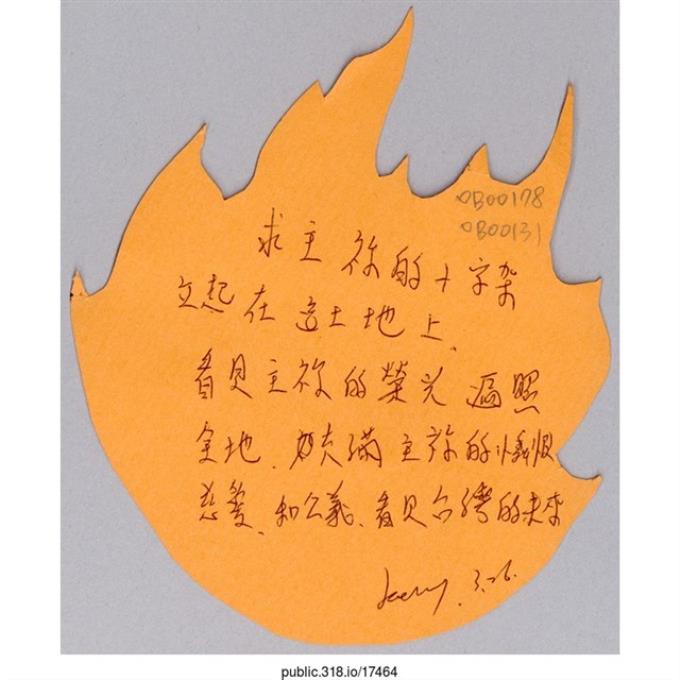 OB00178
OB00131
求主祢的十字架
立起在這土地上、
看見主祢的榮光遍照
全地、充滿主祢的憐恨
慈愛、和公義、看見台灣的未來
3.26.
public.318.io/17464